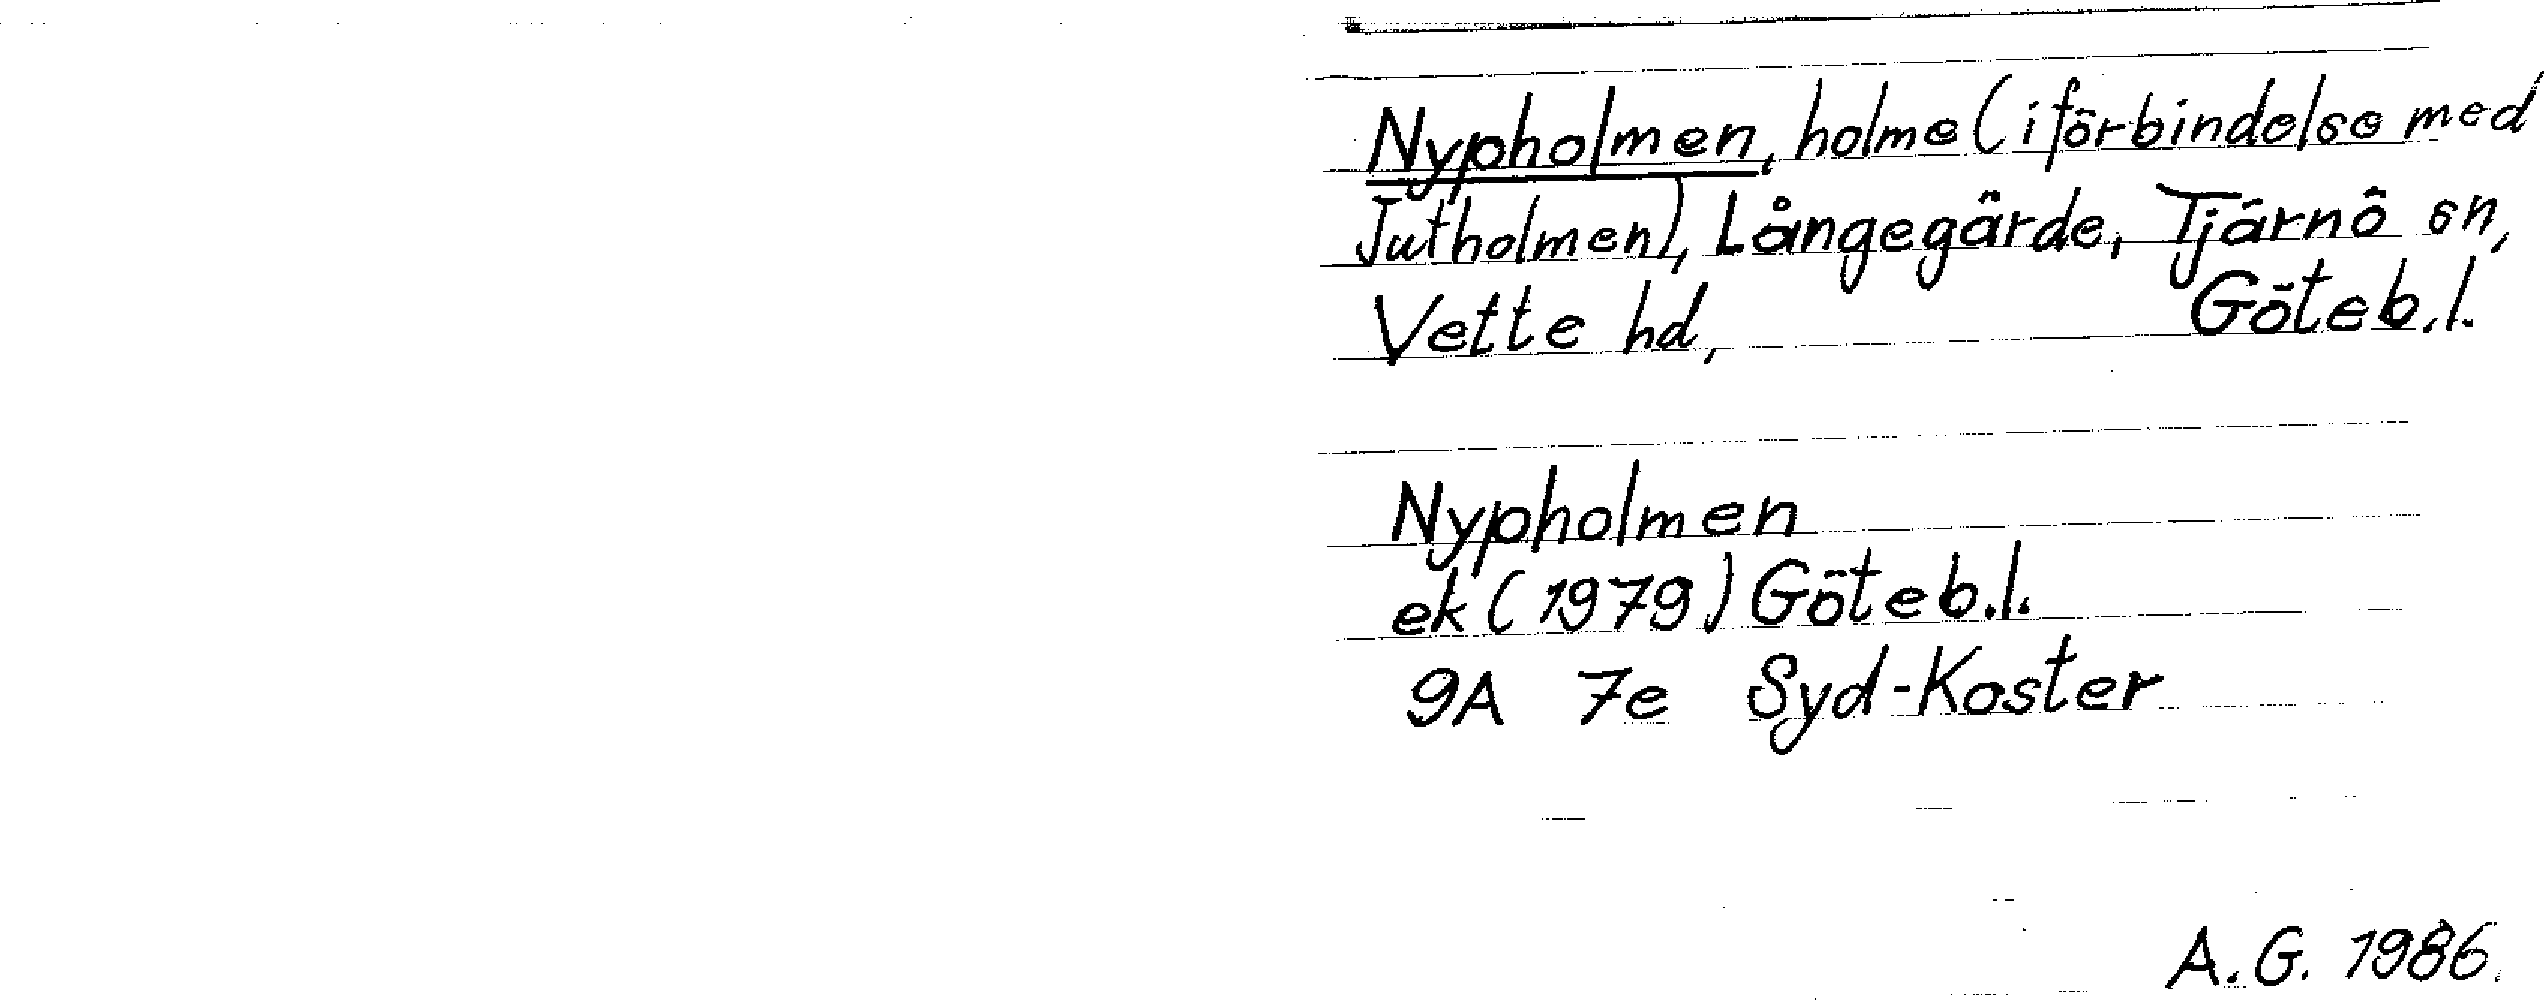 Nypholmen, holme (i förbindelse med
Jutholmen), Långegärde, Tjärnö sn,
Vette hd, Göteb.l.
Nypholmen
ek (1979) Göteb.l.
9A 7e Syd-Koster
A.G. 1986.